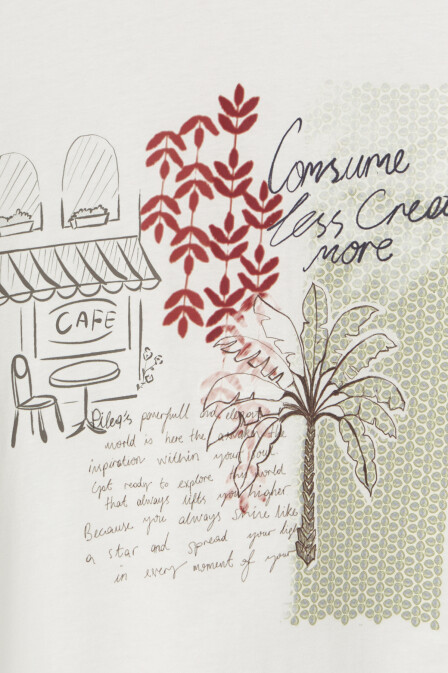 Consume
less Crea
more
CAFE
Pilea's powerfull and elegant
world is here the awaken the
inpiration within your soul
Get ready to explore this world
that always lifts you higher
Because you always shine like
a star and spread your light
in every moment of your